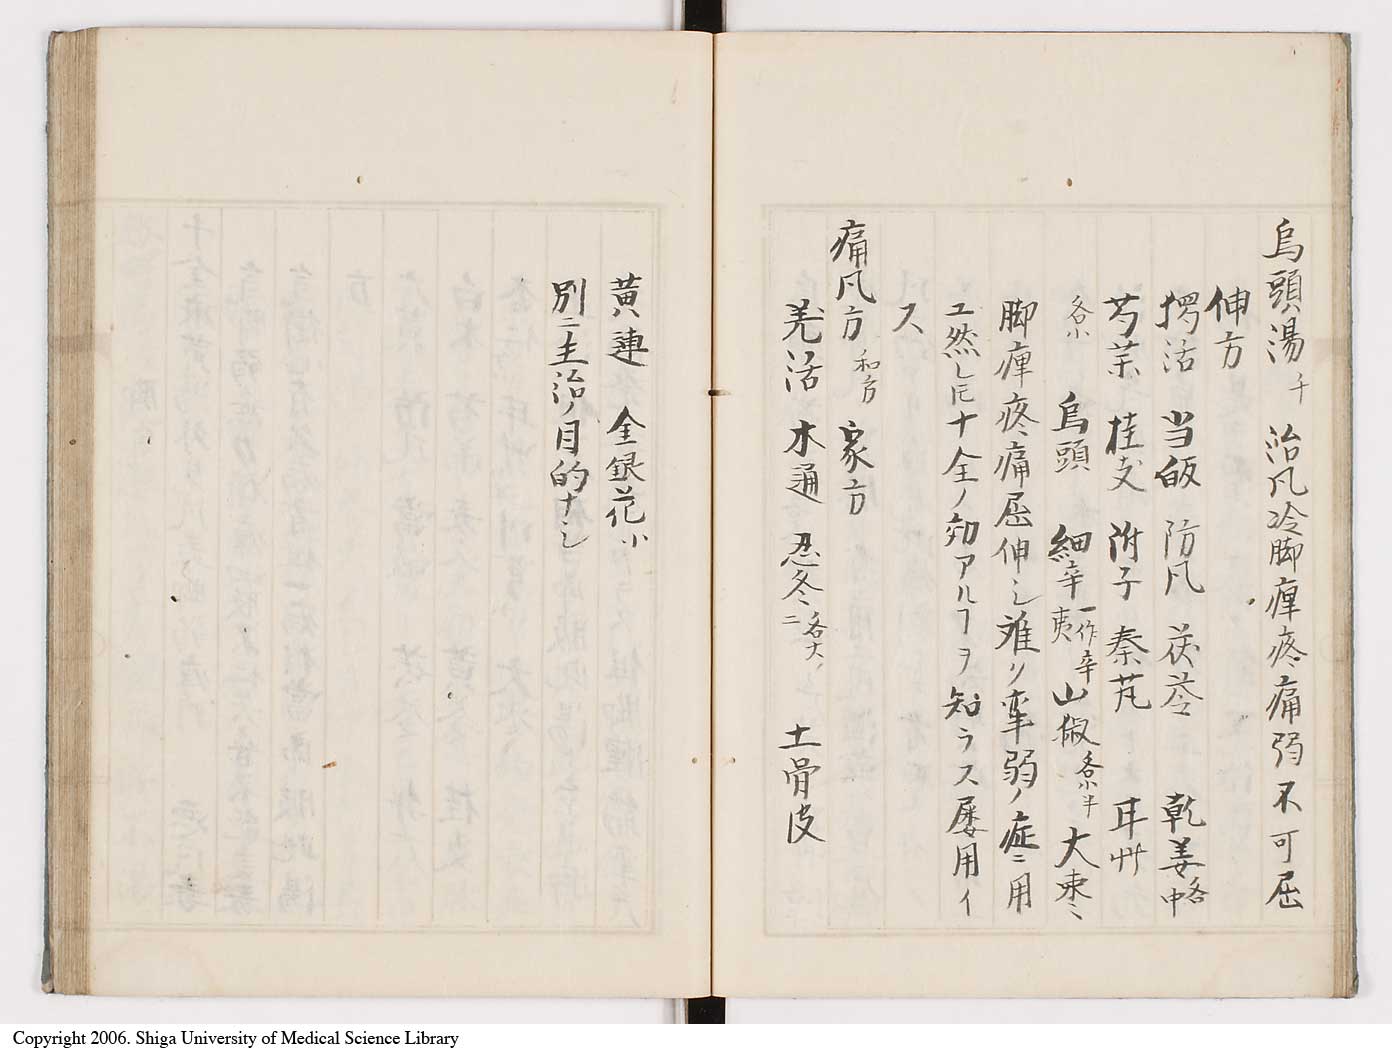 烏頭湯 千 治凡冷脚痺疼痛弱不可屈
伸方
搗活 当皈 防凡 茯苓 乾姜 各中
芍薬 桂支 附子 秦芃 耳艸
各小 烏頭 細辛 一作辛夷 山俶 各小半 大棗ミ
脚痺疼痛屈伸シ難ク挛弱ノ症ニ用
ユ然レ𪜈十全ノ効アルヿヲ知ラス屡用イ
ス
痛凡方 和方 家方
羌活 木通 忍冬ニ 各大ノ 土骨皮
黄連 金銀花小
別ニ主治ノ目的ナシ
Copyright 2006. Shiga University of Medical Science Library